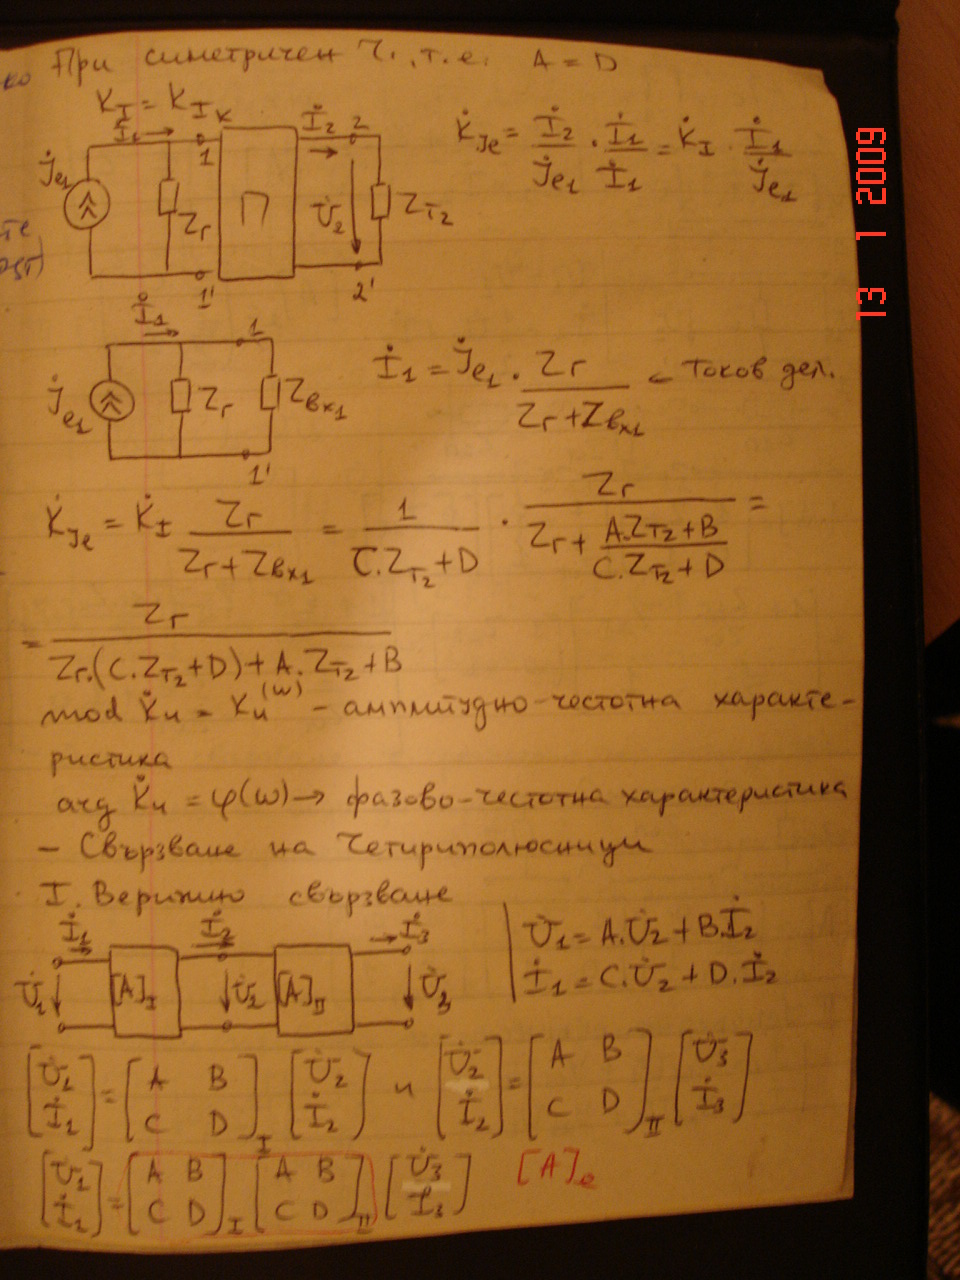 ко При симетричен Ч., т.е. A = D
K_I = K_Iк
İ₁ 1 İ₂ 2
J̇e₁ Zг П U̇₂ Zт₂
1' 2'
K̇Je = İ₂/J̇e₁ . İ₁/İ₁ = K̇I . İ₁/J̇e₁
те
İ₁ 1
J̇e₁ Zг Zвх₁
1'
İ₁ = J̇e₁ . Zг/(Zг + Zвх₁) ← токов дел.
K̇Je = K̇I Zг/(Zг + Zвх₁) = 1/(C.Zт₂ + D) . Zг/(Zг + (A.Zт₂ + B)/(C.Zт₂ + D)) =
= Zг/(Zг.(C.Zт₂ + D) + A.Zт₂ + B)
mod K̇u = Ku(ω) - амплитудно-честотна характе-
ристика
arg K̇u = φ(ω) → фазово-честотна характеристика
- Свързване на Четириполюсници
I. Верижно свързване
İ₁ İ₂ İ₃
U̇₁ [A]I U̇₂ [A]II U̇₃
U̇₁ = A.U̇₂ + B.İ₂
İ₁ = C.U̇₂ + D.İ₂
[U̇₁ İ₁] = [A B C D]I [U̇₂ İ₂] и [U̇₂ İ₂] = [A B C D]II [U̇₃ İ₃]
[U̇₁ İ₁] = [A B C D]I [A B C D]II [U̇₃ İ₃] [A]e
13 1 2009